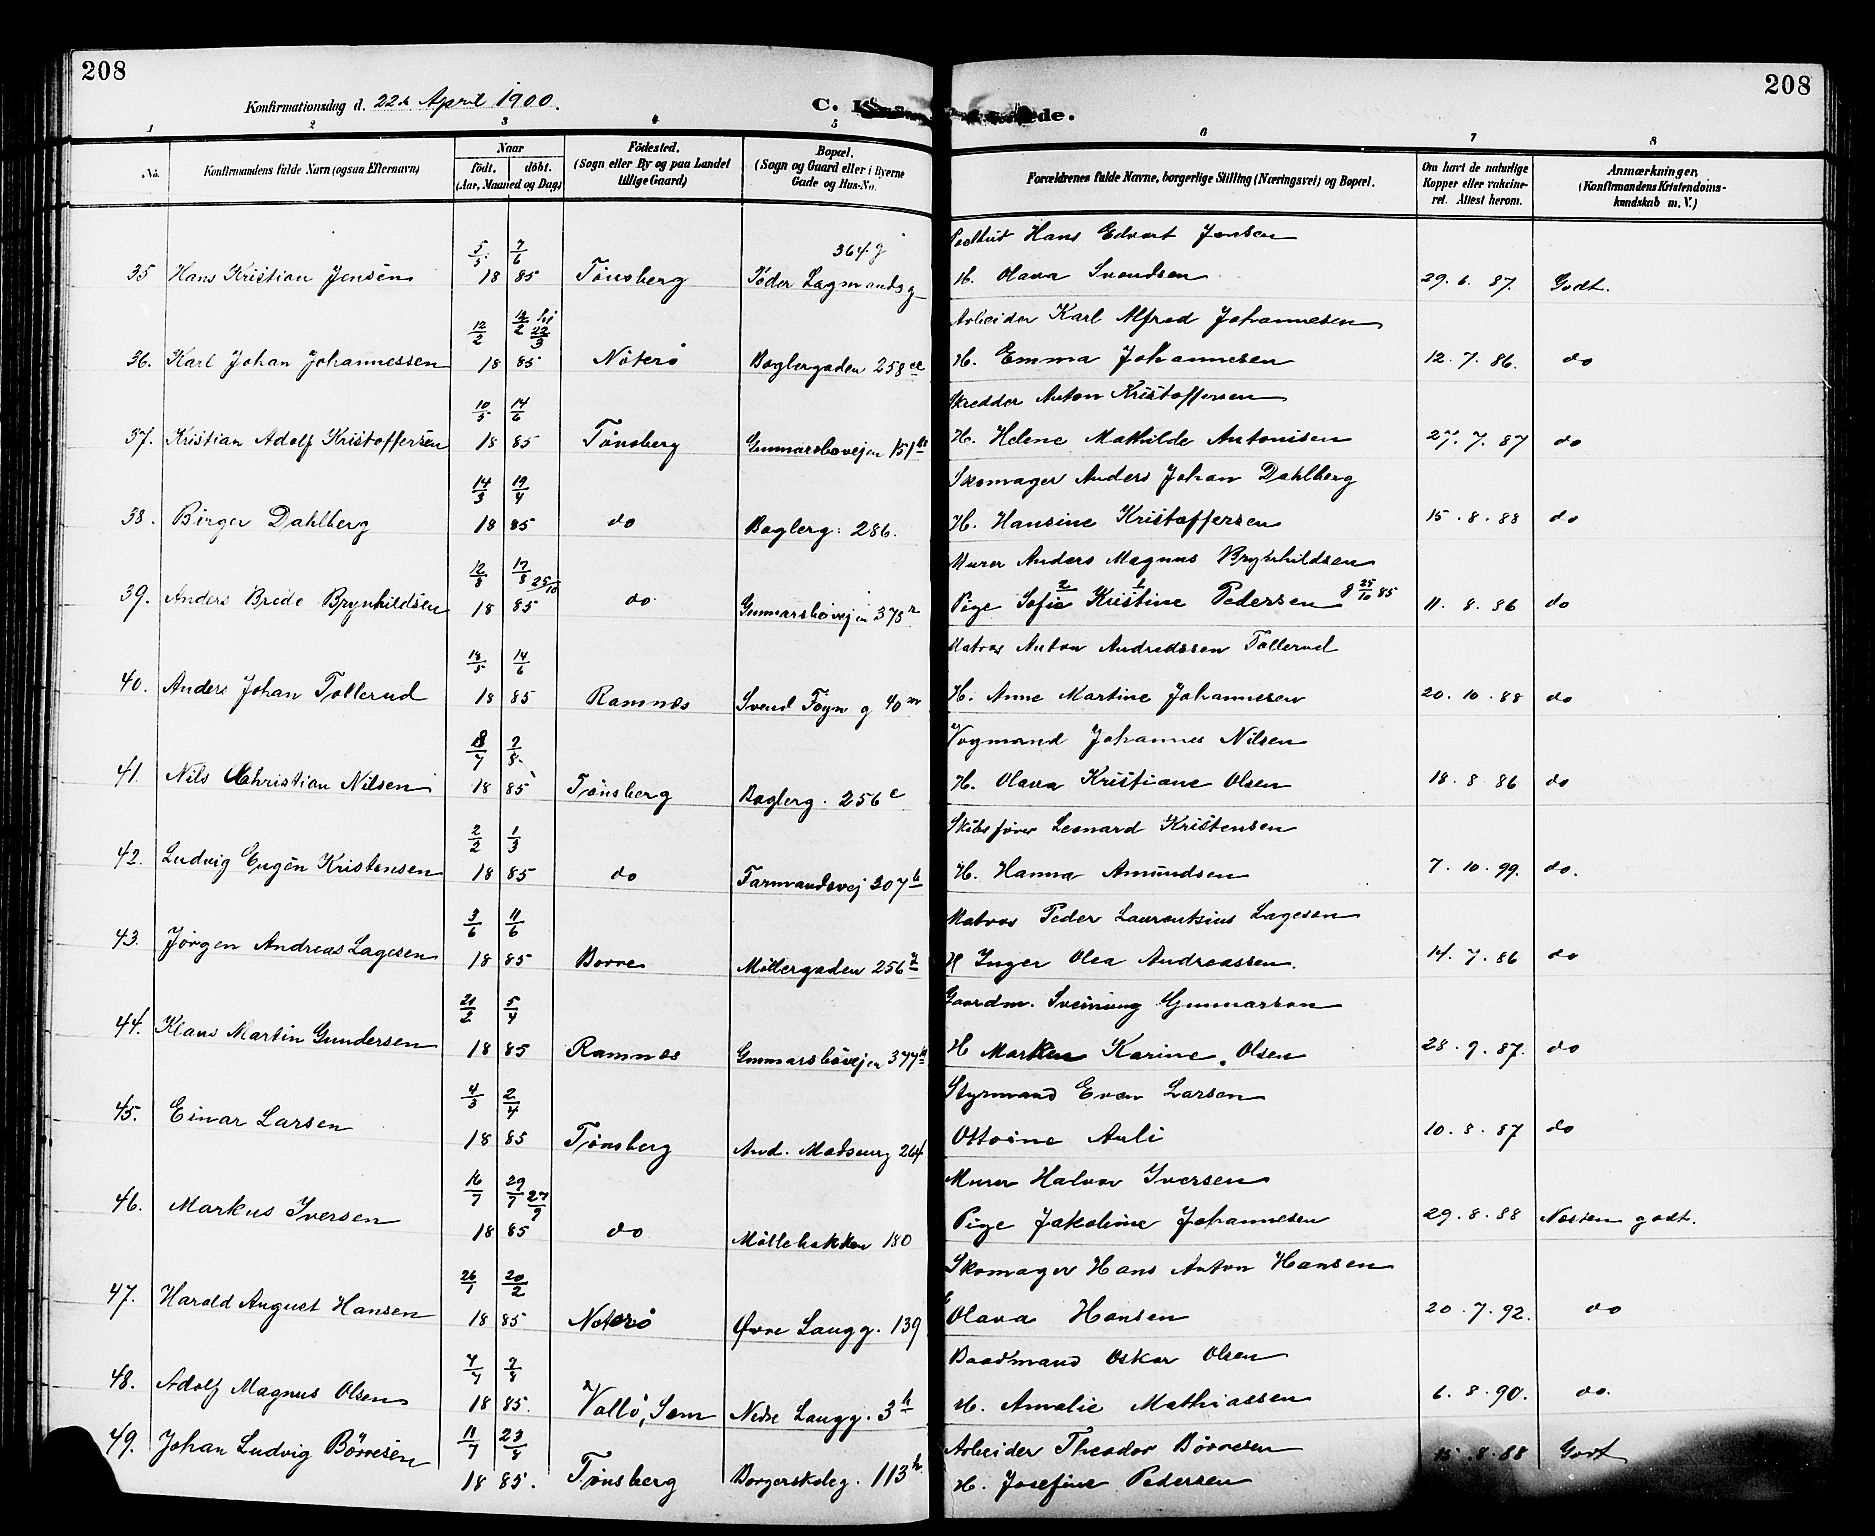 208
208
Konfirmationsdag d. 22de April 1900.
C.
de.
1 2 3 4 5 6 7 8
No.
Konfirmandens fulde Navn (ogsaa Efternavn)
Naar
født. døbt.
(Aar, Maaned og Dag)
Fødested.
(Sogn eller By og paa Landet
tillige Gaard)
Bopæl.
(Sogn og Gaard eller i Byerne
Gade og Hus-No.
Forældrenes fulde Navne, borgerlige Stilling (Næringsvei) og Bopæl.
Om havt de naturlige
Kopper eller vakcine-
ret. Attest herom.
Anmærkninger,
(Konfirmandens Kristendoms-
kundskab m. V.)
5/5 7/6 364 g Hans Edvart Jensen
35 Hans Kristian Jensen 18 85 Tönsberg Peder Lagmandsg H. Olava Svendsen 29. 6. 87. Godt.
12/2 12/2 hj 22/3 Arbeider Karl Alfred Johannesen
36. Karl Johan Johannessen 18 85 Nöterö Baglergaden 258 H. Emma Johannesen 12. 7. 86. do
10/5 14/6 Skredder Anton Kristoffersen
37. Kristian Adolf Kristoffersen 18 85 Tönsberg Gunnarsbövejen 151 H. Helene Mathilde Antonisen 27. 7. 87 do
14/3 19/4 Skomager Anders Johan Dahlberg
38. Birger Dahlberg 18 85 do Baglerg. 286. H. Hansine Kristoffersen 15. 8. 88 do
12/8 17/8 25/10 Murer Anders Magnus Brynhildsen
39. Anders Brede Brynhildsen 18 85 do Gunnarsbövejen 375 Pige Sofie Kristine Pedersen 25/10 85 11. 8. 86 do
18/5 14/6 Matros Anton Andreassen Tollerud
40. Anders Johan Tollerud 18 85 Ramnæs Svend Foyn g 40 m H. Anne Martine Johannesen 20. 10. 88 do
8/7 2/8 Vognmand Johannes Nilsen
41. Nils Christian Nilsen 18 85 Tönsberg Baglerg. 256 c H. Olava Kristiane Olsen 18. 8. 86 do
2/2 1/3 Skibsfører Leonard Kristensen
42. Ludvig Eugen Kristensen 18 85 do Farmandsvej 207 b H. Hanna Amundsen 7. 10. 99. do.
3/6 11/6 Matros Peder Laurentsius Lagesen
43. Jörgen Andreas Lagesen 18 85 Borre Möllergaden 256 H Inger Olea Andreassen. 14. 7. 86 do
21/2 5/4 Gaardm. Sveinung Gunnarson
44. Klaus Martin Gundersen 18 85 Ramnæs Gunnarsbövejen 377 H Maren Karine Olsen 28. 9. 87. do
4/3 2/4 Styrmand Even Larsen
45. Einar Larsen 18 85 Tönsberg And. Madsensg 264 Ottoine Auli 10. 8. 87 do
16/7 29/7 27/9 Murer Halvor Iversen
46. Markus Iversen 18 85 do Möllebakken 180 Pige Jakobine Johannesen 29. 8. 88 Næsten godt.
26/1 20/2 Skomager Hans Anton Hansen
47. Harald August Hansen 18 85 Nøterö Øvre Langg. 139 Olava Hansen 20. 7. 92. do
4/7 2/8 Baadmand Oskar Olsen
48. Adolf Magnus Olsen 18 85. Vallö, Sem Nedre Langg. 3 h H. Amalie Mathiassen 6. 8. 90. do.
11/7 23/8 Arbeider Theodor Börresen
49. Johan Ludvig Börresen 18 85. Tönsberg Borgerskoleg. 113 h. H. Josefine Pedersen 15. 8. 88 Godt